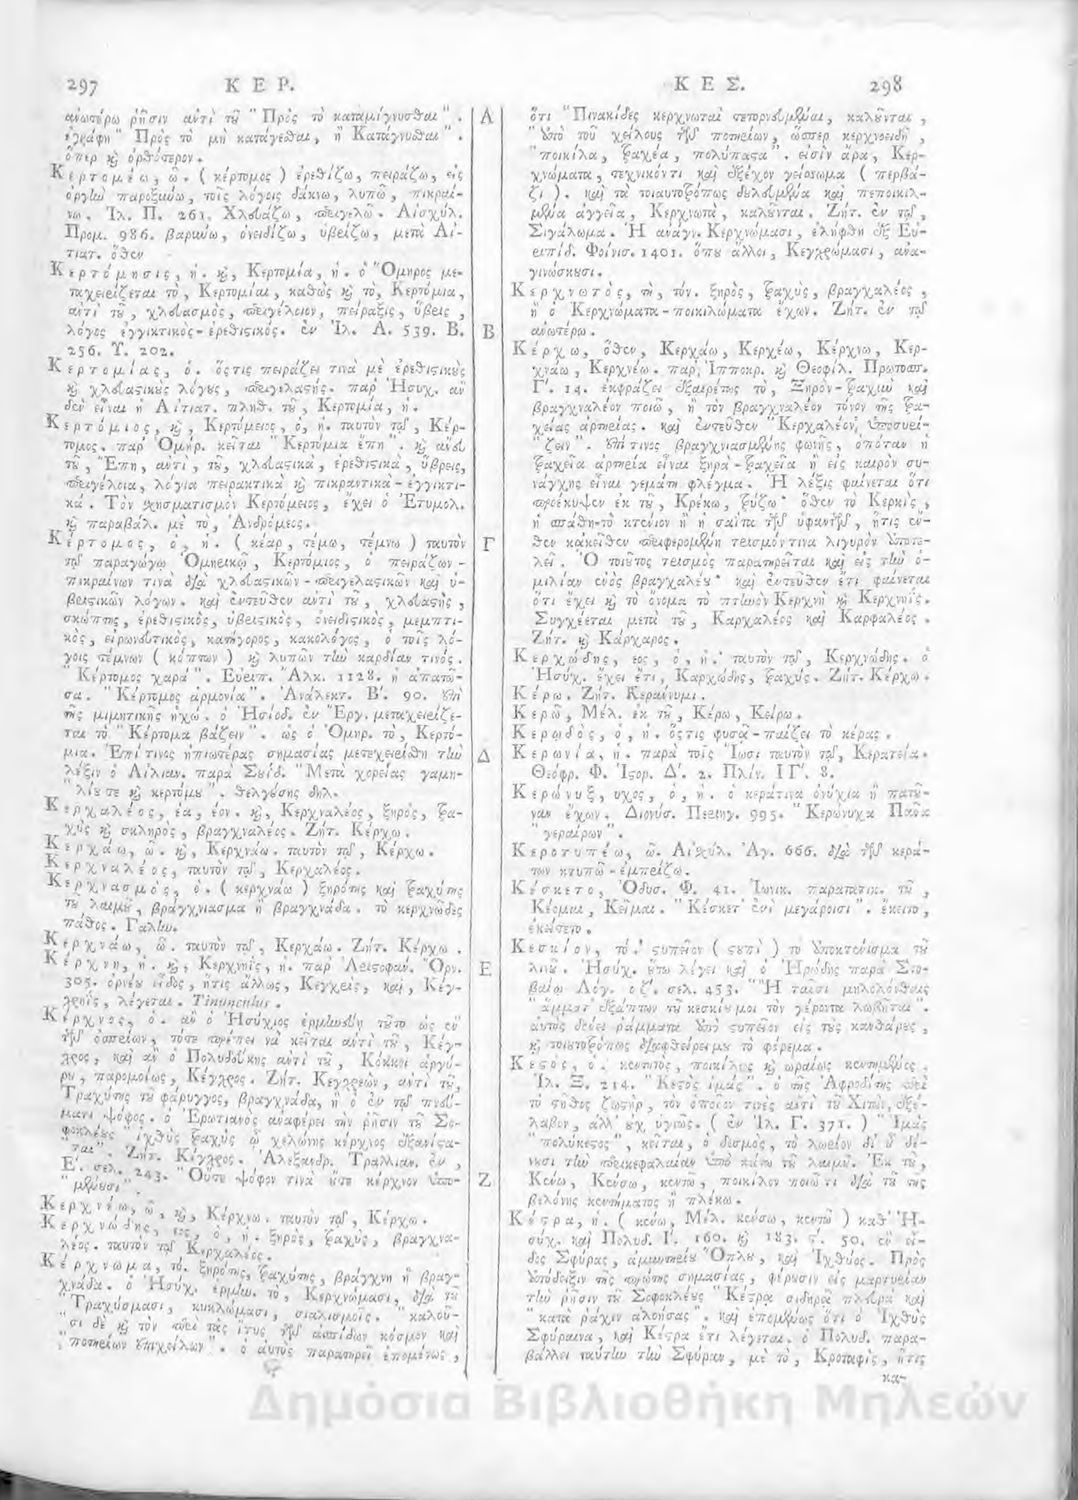 297 ΚΕΡ.
ἀνωτέρω ῥῆσιν ἀντὶ τοῦ "Πρὸς τὸ καταμίγνυσθαι".
ἐγράφη "Πρὸς τὸ μὴ κατάγεσθαι, ἢ Κατάγνυσθαι".
ὅπερ καὶ ὀρθότερον.
Κερτομέω, ῶ. (κέρτομος) ἐρεθίζω, πειράζω, εἰς
ὀργὴν παροξύνω, τοῖς λόγοις δάκνω, λυπῶ, πικραί-
νω. Ἰλ. Π. 261. Χλευάζω, περιγελῶ. Αἰσχύλ.
Προμ. 986. βαρύνω, ὀνειδίζω, ὑβρίζω, μετὰ Αἰ-
τιατ. ὅθεν
Κερτόμησις, ἡ. καὶ, Κερτομία, ἡ. ὁ Ὅμηρος με-
ταχειρίζεται τὸ, Κερτομίαι, καθὼς καὶ τὸ, Κερτόμια,
ἀντὶ τοῦ, χλευασμὸς, περιγέλοιον, πείραξις, ὕβρις,
λόγος ἐγγικτικὸς-ἐρεθιστικός. ἐν Ἰλ. Α. 539. Β.
256. Υ. 202.
Κερτομίας, ὁ. ὅστις πειράζει τινὰ μὲ ἐρεθιστικοὺς
καὶ χλευαστικοὺς λόγους, περιγελαστής. παρ' Ἡσυχ. ἂν
δὲν εἶναι ἡ Αἰτιατ. πληθ. τοῦ, Κερτομία, ἡ.
Κερτόμιος, καὶ, Κερτόμειος, ὁ, ἡ. ταυτὸν τῷ, Κέρ-
τομος. παρ' Ὁμήρ. κεῖται "Κερτόμια ἔπη". καὶ ἄνευ
τοῦ, Ἔπη, ἀντὶ, τοῦ, χλευαστικὰ, ἐρεθιστικὰ, ὕβρεις,
περιγέλοια, λόγια πειρακτικὰ καὶ πικραντικὰ-ἐγγικτι-
κά. Τὸν σχηματισμὸν Κερτόμειος, ἔχει ὁ Ἐτυμολ.
καὶ παραβάλ. μὲ τὸ, Ἀνδρόμεος.
Κέρτομος, ὁ, ἡ. (κέαρ, τέμω, τέμνω) ταυτὸν
τῷ παραγώγῳ Ὁμηρικῷ, Κερτόμιος, ὁ πειράζων-
πικραίνων τινὰ διὰ χλευαστικῶν-περιγελαστικῶν καὶ ὑ-
βριστικῶν λόγων. καὶ ἐντεῦθεν ἀντὶ τοῦ, χλευαστὴς,
σκώπτης, ἐρεθιστικὸς, ὑβριστικὸς, ὀνειδιστικὸς, μεμπτι-
κὸς, εἰρωνευτικὸς, κατήγορος, κακολόγος, ὁ τοῖς λό-
γοις τέμνων (κόπτων) καὶ λυπῶν τὴν καρδίαν τινός.
"Κέρτομος χαρά". Εὐριπ. Ἄλκ. 1128. ἡ ἀπατῶ-
σα. "Κέρτομος ἁρμονία". Ἀνάλεκτ. Β΄. 90. ἐπὶ
τῆς μιμητικῆς ἠχῶ. ὁ Ἡσίοδ. ἐν Ἔργ. μεταχειρίζε-
ται τὸ "Κέρτομα βάζειν". ὡς ὁ Ὅμηρ. τὸ, Κερτό-
μια. Ἐπί τινος ἠπιωτέρας σημασίας μετεχειρίσθη τὴν
λέξιν ὁ Αἰλιαν. παρὰ Σουΐδ. "Μετὰ χορείας γαμη-
"λίου τε καὶ κερτόμου". θελγούσης δηλ.
Κερχαλέος, έα, έον. καὶ, Κερχναλέος, ξηρὸς, τρα-
χὺς καὶ σκληρὸς, βραγχναλέος. Ζήτ. Κέρχω.
Κερχάω, ῶ. καὶ, Κερχνάω. ταυτὸν τῷ, Κέρχω.
Κερχναλέος, ταυτὸν τῷ, Κερχαλέος.
Κερχνασμὸς, ὁ. (κερχνάω) ξηρότης καὶ τραχύτης
τοῦ λαιμοῦ, βράγχνιασμα ἢ βραγχνάδα. τὸ κερχνῶδες
πάθος. Γαλην.
Κερχνάω, ῶ. ταυτὸν τῷ, Κερχάω. Ζήτ. Κέρχω.
Κέρχνη, ἡ. καὶ, Κερχνηῒς, ἡ. παρ' Ἀριστοφάν. Ὄρν.
305. ὀρνέου εἶδος, ἥτις ἄλλως, Κέγχρις, καὶ, Κέγ-
χρηῒς, λέγεται. Tinunculus.
Κέρχνος, ὁ. ἂν ὁ Ἡσύχιος ἑρμηνεύῃ τοῦτο ὡς ἐν
τῶν ὀσπρίων, τότε πρέπει νὰ κεῖται ἀντὶ τοῦ, Κέγ-
χρος, καὶ ἂν ὁ Πολυδεύκης ἀντὶ τοῦ, Κόκκοι ἀργύ-
ρου, παρομοίως, Κέγχρος. Ζήτ. Κεγχρεὼν, ἀντὶ τοῦ,
Τραχύτης τοῦ φάρυγγος, βραγχνάδα, ἢ ὁ ἐν τῷ πνεύ-
μονι ψόφος. ὁ Ἐρωτιανὸς ἀναφέρει τὴν ῥῆσιν τοῦ Σο-
φοκλέους "ἰχθὺς τραχὺς ᾧ χελώνης κέρχνος ἐξανίστα-
ται". Ζήτ. Κέγχρος. Ἀλέξανδρ. Τραλλιαν. ἐν,
Ε΄. σελ. 243. "Οὔτε ψόφον τινὰ οὔτε κέρχνον ὑπο-
Κερχνόω, ῶ, καὶ, Κέρχνω. ταυτὸν τῷ, Κέρχω.
Κερχνώδης, εος, ὁ, ἡ. ξηρὸς, τραχὺς, βραγχνα-
λέος. ταυτὸν τῷ Κερχαλέος.
Κέρχνωμα, τό. ξηρότης, τραχύτης, βράγχνη ἢ βραγ-
χνάδα. ὁ Ἡσύχ. ἑρμην. τὸ, Κερχνώμασι, διὰ τοῦ
"Τραχύσμασι, κυκλώμασι, σιαλισμοῖς. "καλοῦ-
"σι δὲ καὶ τὸν περὶ τὰς ἴτυς τῶν ἀσπίδων κόσμον καὶ
"ποτηρίων ἐπιχείλων". ὁ αὐτὸς παρατηρεῖ ἑπομένως,
Α
Β
Γ
Δ
Ε
Ζ
ΚΕΣ. 298
ὅτι "Πινακίδες κερχνωταὶ τετορνευμέναι, καλοῦνται,
"ὑπὸ τοῦ χείλους τῶν ποτηρίων, ὥσπερ κερχνοειδῆ,
"ποικίλα, τραχέα, πολύπαστα". εἰσὶν ἄρα, Κερ-
χνώματα, τεχνικόν τι καὶ ἐξέχον γείσωμα (περβά-
ζι). καὶ τὰ τοιουτοτρόπως δουλευμένα καὶ πεποικιλ-
μένα ἀγγεῖα, Κερχνωτὰ, καλοῦνται. Ζήτ. ἐν τῷ,
Σιγάλωμα. Ἡ ἀνάγν. Κερχνώμασι, ἐλήφθη ἐξ Εὐ-
ριπίδ. Φοίνισ. 1401. ὅπου ἄλλοι, Κεγχρώμασι, ἀνα-
γινώσκουσι.
Κερχνωτὸς, τὴ, τόν. ξηρὸς, τραχὺς, βραγχαλέος,
ἢ ὁ Κερχνώματα-ποικιλώματα ἔχων. Ζήτ. ἐν τῷ
ἀνωτέρω.
Κέρχω, ὅθεν, Κερχάω, Κερχέω, Κέρχνω, Κερ-
χνάω, Κερχνέω. παρ' Ἱπποκρ. καὶ Θεοφίλ. Πρωτοσπ.
Γ΄. 14. ἐκφράζει ἐξαιρέτως τὸ, Ξηρὸν-τραχὺν καὶ
βραγχναλέον ποιῶ, ἢ τὸν βραγχναλέον τόνον τῆς τρα-
χείας ἀρτηρίας. καὶ ἐντεῦθεν "Κερχαλέον ὑποσυρί-
"ζειν". ἐπί τινος βραγχνιασμένης φωνῆς, ὁπόταν ἡ
τραχεῖα ἀρτηρία εἶναι ξηρὰ-τραχεῖα ἢ εἰς καιρὸν συ-
νάγχης εἶναι γεμάτη φλέγμα. Ἡ λέξις φαίνεται ὅτι
προέκυψεν ἐκ τοῦ, Κρέκω, τρύζω· ὅθεν τὸ Κερκὶς,
ἡ σπάθη-τὸ κτένιον ἢ ἡ σαΐτα τῶν ὑφαντῶν, ἥτις ἔν-
θεν κἀκεῖθεν περιφερομένη τρισμόν τινα λιγυρὸν ἀποτε-
λεῖ. Ὁ τοιοῦτος τρισμὸς παρατηρεῖται καὶ εἰς τὴν ὁ-
μιλίαν ἑνὸς βραγχαλέου· καὶ ἐντεῦθεν ἔτι φαίνεται
ὅτι ἔχει καὶ τὸ ὄνομα τὸ πτηνὸν Κερχνὴ καὶ Κερχνηΐς.
Συγχέεται μετὰ τοῦ, Καρχαλέος καὶ Καρφαλέος.
Ζήτ. καὶ Κάρχαρος.
Κερχώδης, εος, ὁ, ἡ. ταυτὸν τῷ, Κερχνώδης. ὁ
Ἡσύχ. ἔχει ἔτι, Καρχώδης, τραχύς. Ζήτ. Κέρχω.
Κέρω. Ζήτ. Κεράννυμι.
Κερῶ, Μέλ. ἐκ τοῦ, Κέρω, Κείρω.
Κερῳδὸς, ὁ, ἡ. ὅστις φυσᾷ-παίζει τὸ κέρας.
Κερωνία, ἡ. παρὰ τοῖς Ἴωσι ταυτὸν τῷ, Κερατεία.
Θεόφρ. Φ. Ἱστορ. Δ΄. 2. Πλίν. ΙΓ΄. 8.
Κερώνυξ, υχος, ὁ, ἡ. ὁ κεράτινα ὀνύχια ἢ πατού-
ναν ἔχων. Διονύσ. Περιηγ. 995. "Κερώνυχα Πᾶνα
"γεραίρων".
Κεροτυπέω, ῶ. Αἰσχύλ. Ἀγ. 666. διὰ τῶν κερά-
των κτυπῶ-ἐμπρίζω.
Κέσκετο, Ὀδυσ. Φ. 41. Ἰωνικ. παρατατικ. τοῦ,
Κέομαι, Κεῖμαι. "Κέσκετ' ἐνὶ μεγάροισι". ἔκειτο,
ἐκείτετο.
Κεσκίον, τό. στυπεῖον (στυπὶ) τὸ ἀποκτένισμα τοῦ
λινοῦ. Ἡσύχ. οὕτω λέγει καὶ ὁ Ἡρώδης παρὰ Στο-
βαίῳ Λόγ. οζ΄. σελ. 453. "Ἢ ταῖσι μηλολόνθαις
"ἅμματ' ἐξάπτων τοῦ κεσκίου μοι τὸν γέροντα λωβῆται".
αὐτὸς δένει ῥάμματα ἀπὸ στυπεῖον εἰς τοὺς κανθάρους,
καὶ τοιουτοτρόπως διαφθείρει μου τὸ φόρεμα.
Κεστὸς, ὁ. κεντητὸς, ποικίλος καὶ ὡραίως κεντημένος.
Ἰλ. Ξ. 214. "Κεστὸς ἱμάς". ὁ τῆς Ἀφροδίτης περὶ
τὸ στῆθος ζωστὴρ, τὸν ὁποῖον τινὲς ἀντὶ τοῦ Χιτὼν, ἐξέ-
λαβον, ἀλλ' οὐχ ὑγιῶς. (ἐν Ἰλ. Γ. 371.) "Ἱμὰς
"πολύκεστος", κεῖται, ὁ δεσμὸς, τὸ λωρίον δι' οὗ δέ-
νουσι τὴν περικεφαλαίαν ἀπὸ κάτω τοῦ λαιμοῦ. Ἐκ τοῦ,
Κένω, Κένσω, κεντῶ, ποικίλον ποιῶ τι διὰ τοῦ τῆς
βελόνης κεντήματος ἢ πλέκω.
Κέστρα, ἡ. (κένω, Μέλ. κένσω, κεντῶ) καθ' Ἡ-
σύχ. καὶ Πολυδ. Ι΄. 160. καὶ 183. ς΄. 50. ἐν εἶ-
δος Σφύρας, ἀμυντηρίου Ὅπλου, καὶ Ἰχθύος. Πρὸς
ἀπόδειξιν τῆς πρώτης σημασίας, φέρουσιν εἰς μαρτυρίαν
τὴν ῥῆσιν τοῦ Σοφοκλέους "Κέστρᾳ σιδηρᾷ πλευρὰ καὶ
"κατὰ ῥάχιν ἀλοήσας". καὶ ἑπομένως ὅτι ὁ Ἰχθὺς
Σφύραινα, καὶ Κέστρα ἔτι λέγεται. ὁ Πολυδ. παρα-
βάλλει ταύτην τὴν Σφύραν, μὲ τὸ, Κροταφὶς, ἥτις
κα-
Δημόσια Βιβλιοθήκη Μηλεών